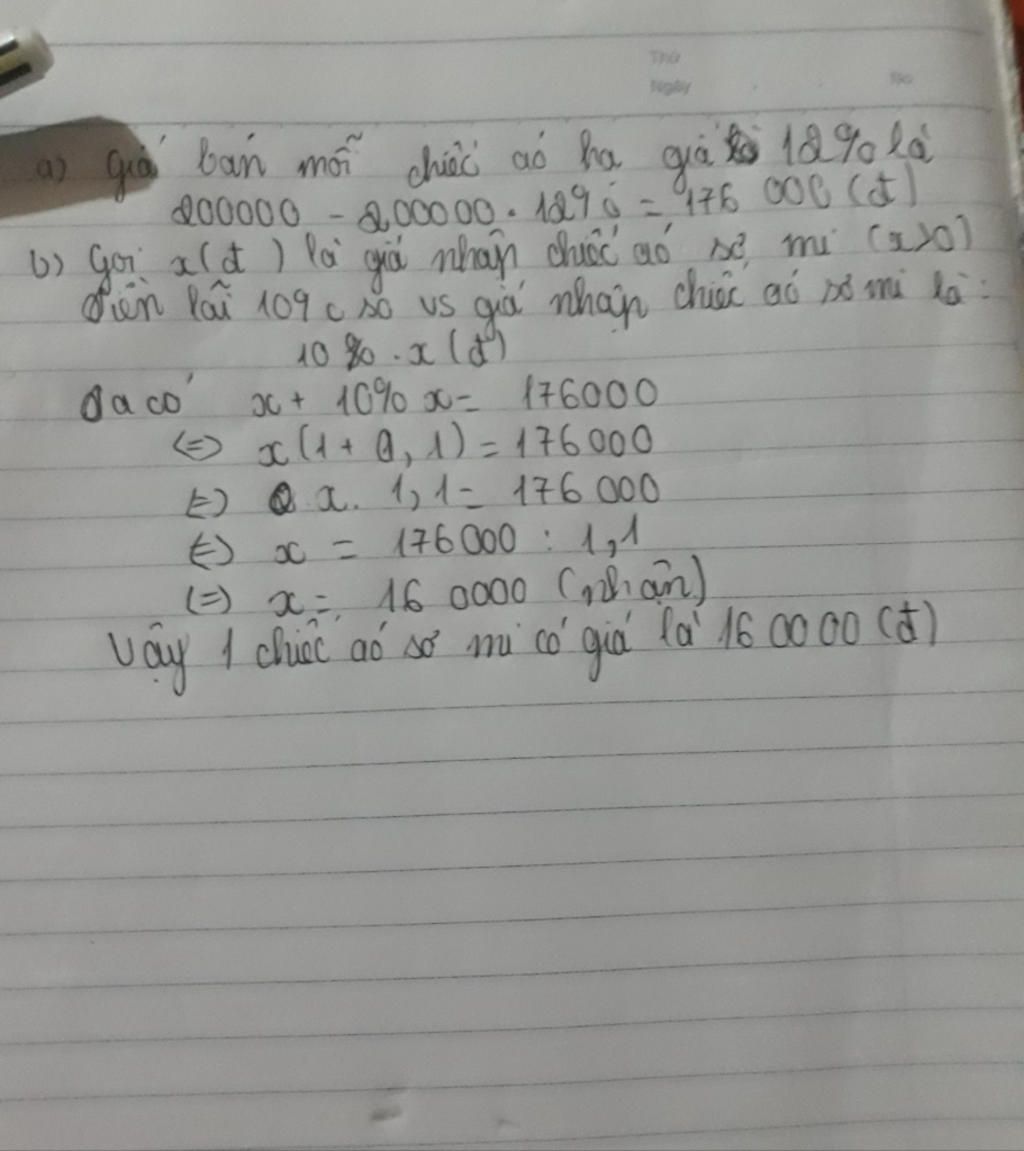 Thứ
Ngày No
a) Giá bán mỗi chiếc áo hạ giá 12% là
200000 - 200000 . 12% = 176 000 (đ)
b) Gọi x(đ) là giá nhập chiếc áo sơ mi (x>0)
Tiền lãi 10% so vs giá nhập chiếc áo sơ mi là:
10% . x (đ)
Ta có x + 10% x = 176000
<=> x(1 + 0,1) = 176 000
<=> x . 1,1 = 176 000
<=> x = 176000 : 1,1
<=> x = 16 0000 (nhận)
Vậy 1 chiếc áo sơ mi có giá là 16 0000 (đ)